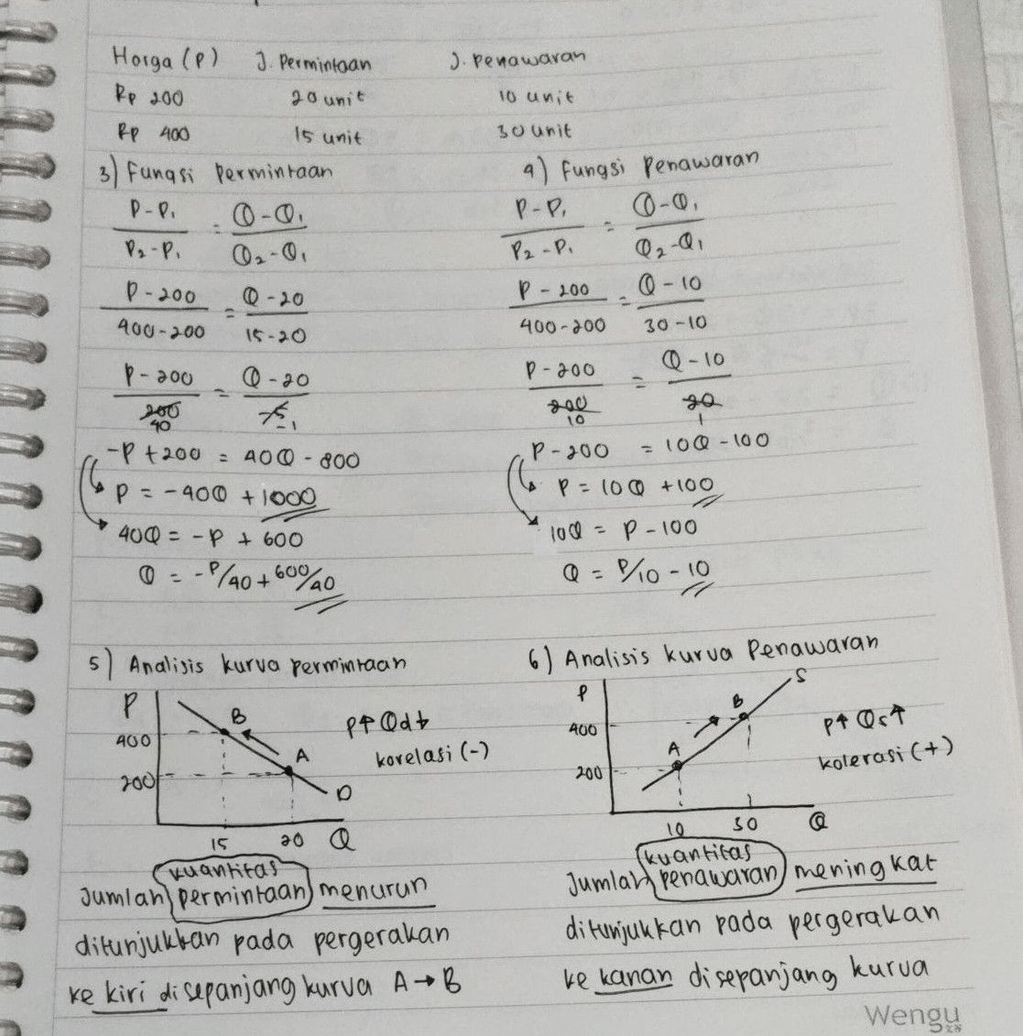 Harga (P) J. Permintaan J. Penawaran
Rp 200 20 unit 10 unit
Rp 400 15 unit 30 unit
3) Fungsi Permintaan
P-P₁ / P₂-P₁ = Q-Q₁ / Q₂-Q₁
P-200 / 400-200 = Q-20 / 15-20
P-200 / 200 40 = Q-20 / -5 -1
-P+200 = 40Q-800
P = -40Q+1000
40Q = -P+600
Q = -P/40+600/40
4) Fungsi Penawaran
P-P₁ / P₂-P₁ = Q-Q₁ / Q₂-Q₁
P-200 / 400-200 = Q-10 / 30-10
P-200 / 200 10 = Q-10 / 20 1
P-200 = 10Q-100
P = 10Q+100
10Q = P-100
Q = P/10-10
5) Analisis kurva permintaan
P
B
400
A
200
D
15 20 Q
P↑ Qd↓
korelasi (-)
kuantitas
Jumlah permintaan menurun
ditunjukkan pada pergerakan
ke kiri disepanjang kurva A→B
6) Analisis kurva Penawaran
P
S
B
400
A
200
10 30 Q
P↑ Qs↑
kolerasi (+)
kuantitas
Jumlah penawaran meningkat
ditunjukkan pada pergerakan
ke kanan disepanjang kurva
Wengu